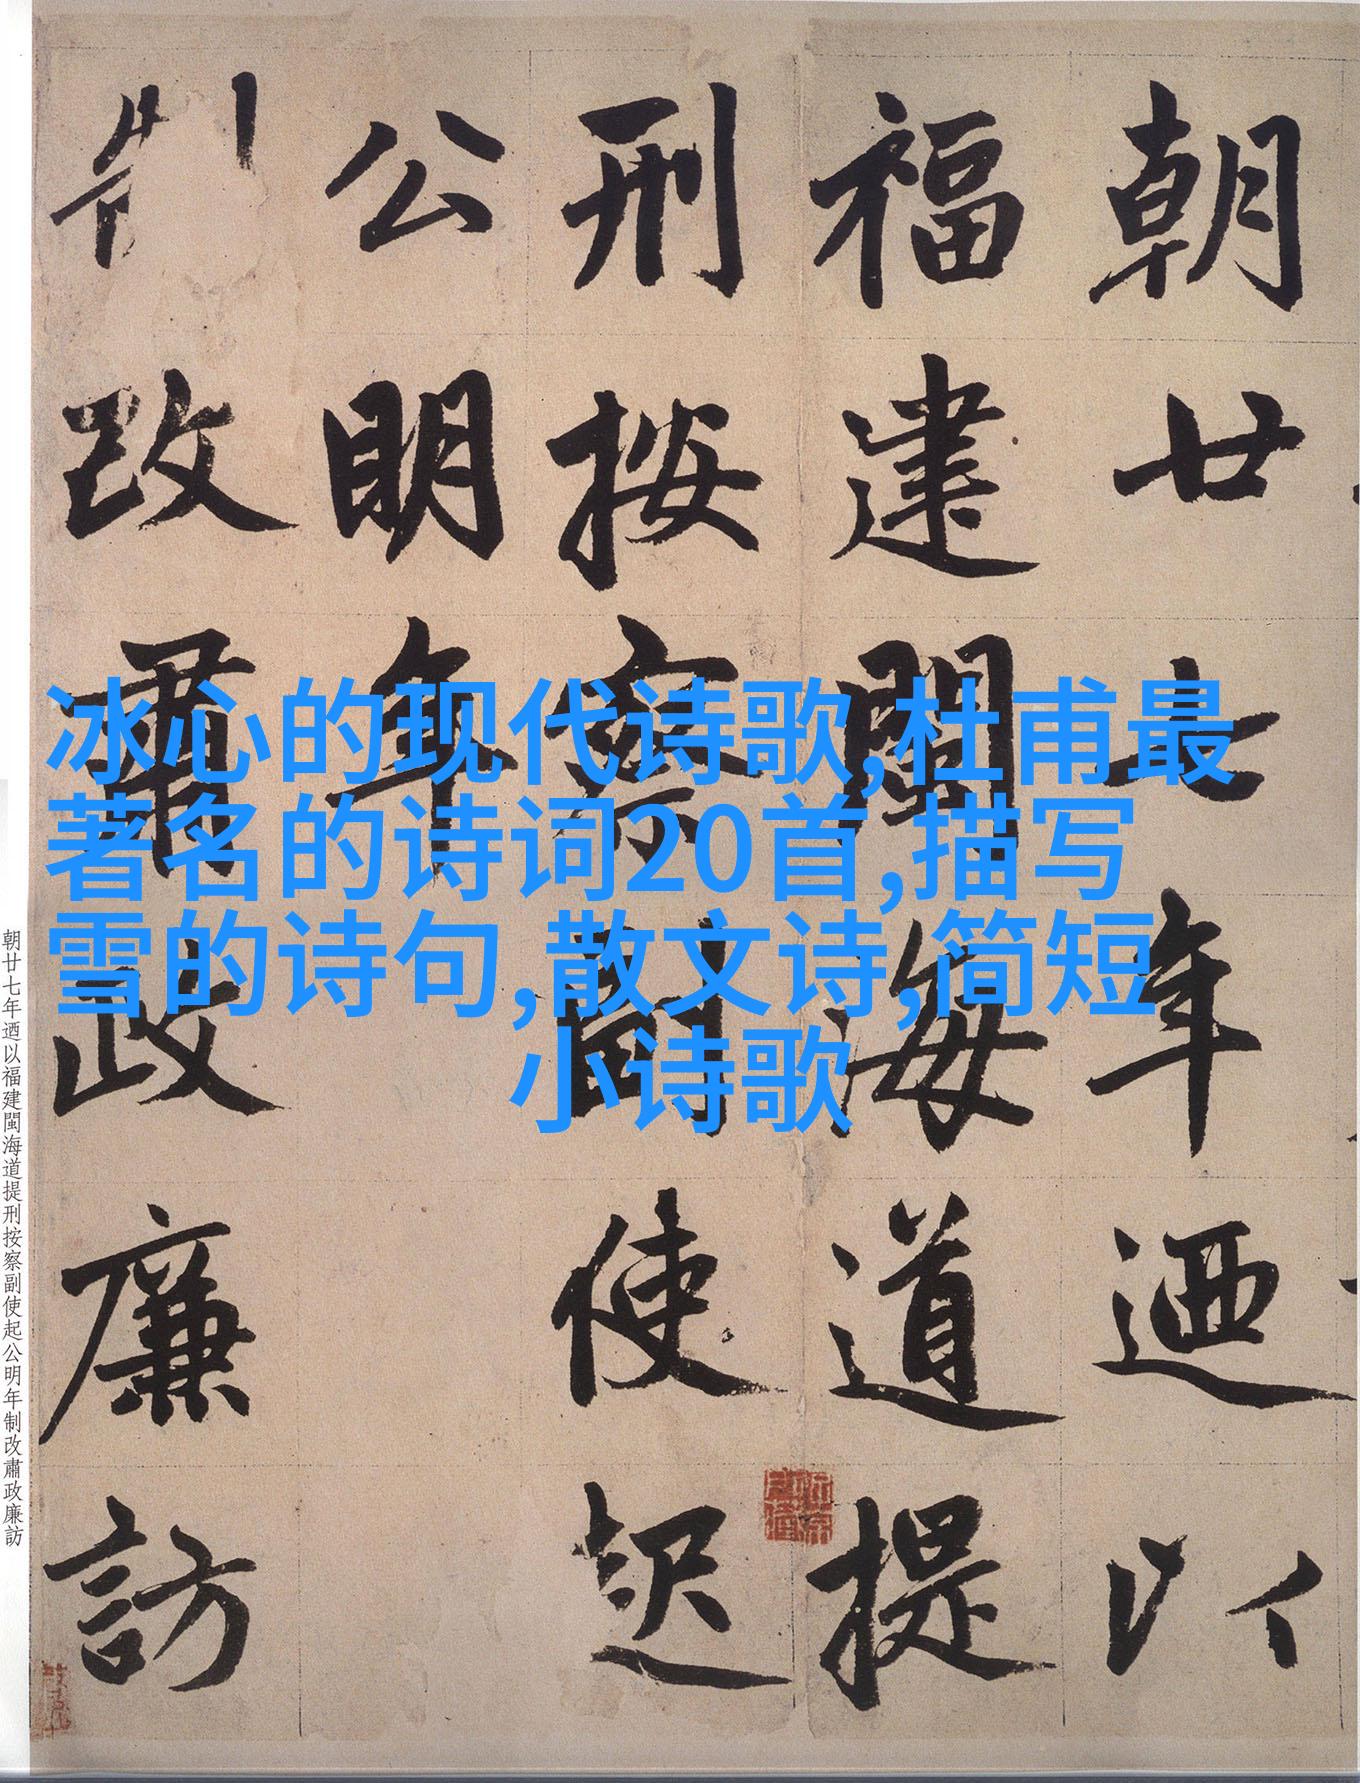 朝廿七年迺以
福建閩海道提
刑按察副使起
公明年
制改肅政廉訪
冰心的现代诗歌,杜甫最
著名的诗词20首,描写
雪的诗句,散文诗,简短
小诗歌
朝廿七年迺以福建閩海道提刑按察副使起公明年制改肅政廉訪